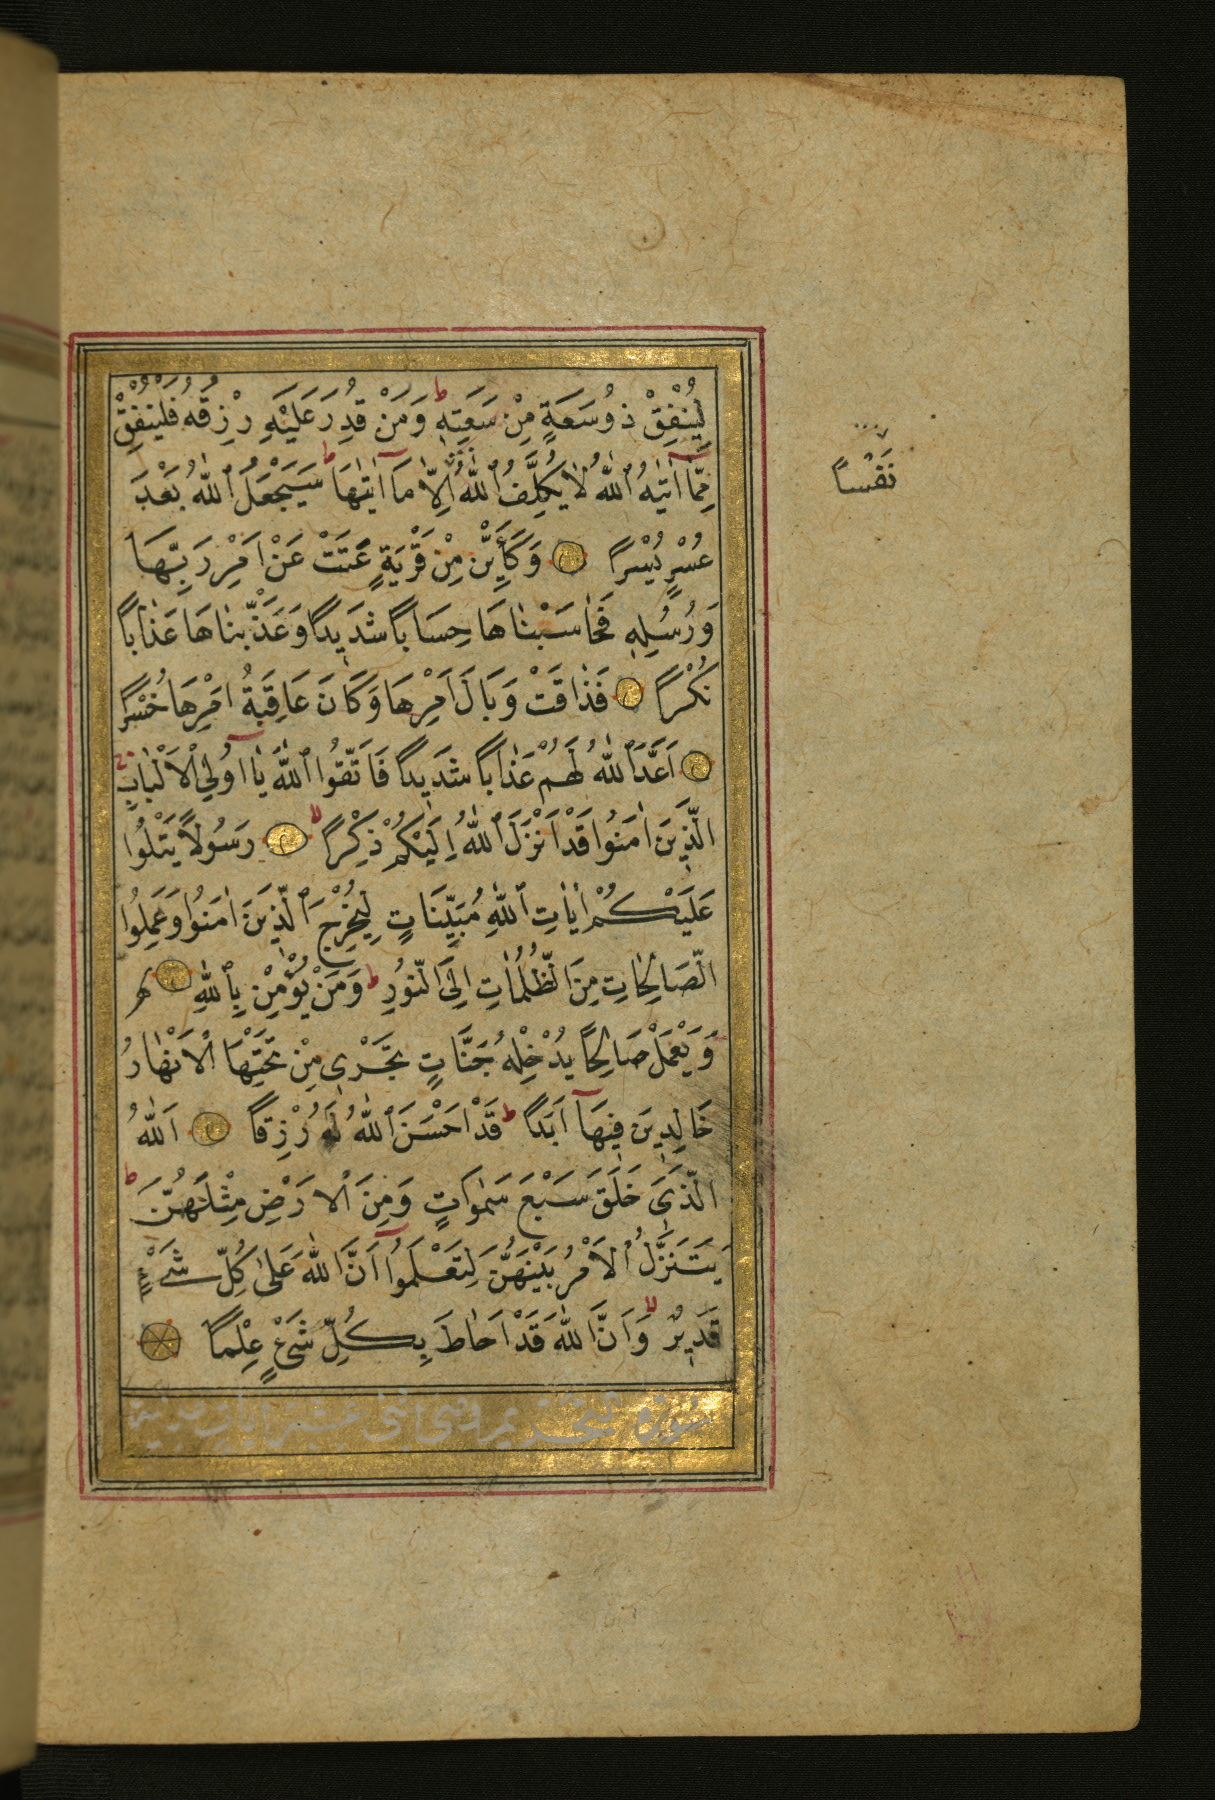 لِيُنْفِقْ ذُو سَعَةٍ مِنْ سَعَتِهِ ط وَمَنْ قُدِرَ عَلَيْهِ رِزْقُهُ فَلْيُنْفِقْ
مِمَّا اٰتٰيهُ اللّٰهُ لَا يُكَلِّفُ اللّٰهُ اِلَّا مَا اٰتٰيهَا ط سَيَجْعَلُ اللّٰهُ بَعْدَ
نَفْسًا
عُسْرٍ يُسْرًا وَكَأَيِّنْ مِنْ قَرْيَةٍ عَتَتْ عَنْ اَمْرِ رَبِّهَا
وَرُسُلِهِ فَحَاسَبْنَاهَا حِسَابًا شَدِيدًا وَعَذَّبْنَاهَا عَذَابًا
نُكْرًا فَذَاقَتْ وَبَالَ اَمْرِهَا وَكَانَ عَاقِبَةُ اَمْرِهَا خُسْرًا
اَعَدَّ اللّٰهُ لَهُمْ عَذَابًا شَدِيدًا فَاتَّقُوا اللّٰهَ يَا اُولِي الْاَلْبَابِ
الَّذِينَ اٰمَنُوا قَدْ اَنْزَلَ اللّٰهُ اِلَيْكُمْ ذِكْرًا لا رَسُولًا يَتْلُوا
عَلَيْكُمْ اٰيَاتِ اللّٰهِ مُبَيِّنَاتٍ لِيُخْرِجَ الَّذِينَ اٰمَنُوا وَعَمِلُوا
الصَّالِحَاتِ مِنَ الظُّلُمَاتِ اِلَى النُّورِ ط وَمَنْ يُؤْمِنْ بِاللّٰهِ
وَيَعْمَلْ صَالِحًا يُدْخِلْهُ جَنَّاتٍ تَجْرِي مِنْ تَحْتِهَا الْاَنْهَارُ
خَالِدِينَ فِيهَا اَبَدًا ط قَدْ اَحْسَنَ اللّٰهُ لَهُ رِزْقًا اَللّٰهُ
الَّذِي خَلَقَ سَبْعَ سَمٰوَاتٍ وَمِنَ الْاَرْضِ مِثْلَهُنَّ ط
يَتَنَزَّلُ الْاَمْرُ بَيْنَهُنَّ لِتَعْلَمُوا اَنَّ اللّٰهَ عَلٰى كُلِّ شَيْءٍ
قَدِيرٌ لا وَاَنَّ اللّٰهَ قَدْ اَحَاطَ بِكُلِّ شَيْءٍ عِلْمًا
سورة التحريم وهي اثنى عشر ايات مدنية